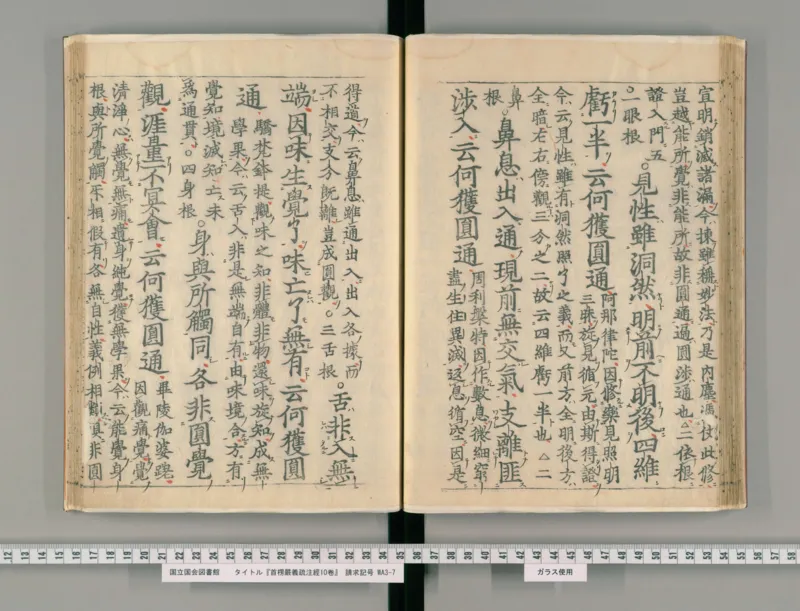 宣明銷滅諸漏今揀雖稱妙法乃是內塵憑杖此修
豈越能所覺非能所故非圓通遍圓涉通也△二依根
證入門五
一眼根
。見性雖洞然明前不明後四維
虧一半云何獲圓通
阿那律陀因修樂見照明
三昧旋見循元由斯得證
今云見性雖有洞然照了之義而又前方全明後方
全暗左右傍觀三分之二故云四維虧一半也△二
鼻
根
。鼻息出入通現前無交氣支離匪
涉入云何獲圓通
周利槃特因作數息微細窮
盡生住異滅返息循空因是
得道今云鼻息雖通出入出入各據而
不相交支分既離豈成圓觀。三舌根
。舌非入無
端因味生覺了味亡了無有云何獲圓
通
驕梵鉢提觀味之知非體非物還味旋知成無
學果今云舌入非是無端自有由味境合方有
覺知境滅知亡未
為通貫。四身根
。身與所觸同各非圓覺
觀涯量不冥會云何獲圓通
畢陵伽婆蹉
因觀痛覺覺
清淨心無覺無痛遺身純覺獲無學果今云能覺身
根與所覺觸互相假有各無自性義例相 真非圓
12 13 14 15 16 17 18 19 20 21 22 23 24 25 26 27 28 29 30 31 32 33 34 35 36 37 38 39 40 41 42 43 44 45 46 47 48 49 50 51 52 53 54 55 56 57 58
国立国会図書館 タイトル『首楞嚴義疏注經10巻』 請求記号 WA3-7
ガラス使用